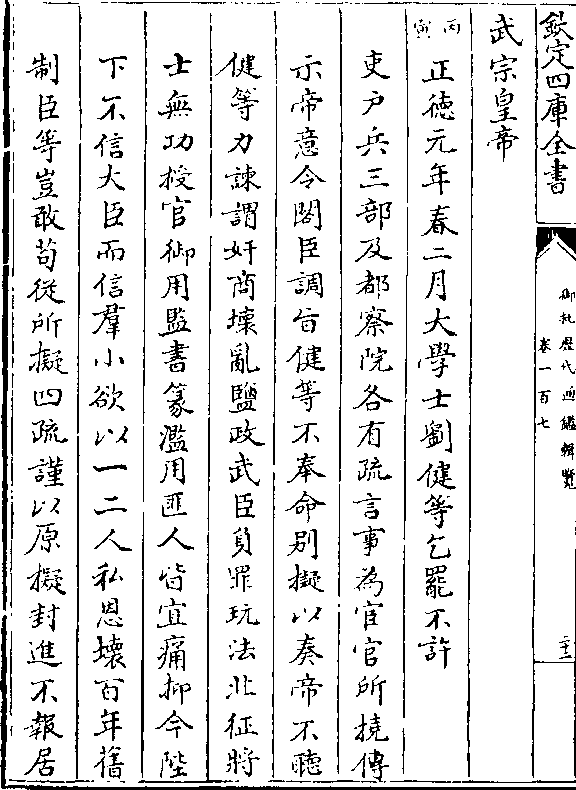 欽定四庫全書
御批歷代通鑑輯覽
卷一百七
武宗皇帝
丙寅
正徳元年春二月大學士劉健等乞罷不許
吏户兵三部及都察院各有疏言事為宦官所撓傳
示帝意令閣臣調旨健等不奉命别擬以奏帝不聽
健等力諫謂奸商壊亂鹽政武臣負罪玩法北征將
士無功授官御用監書篆濫用匪人皆宜痛抑今陛
下不信大臣而信羣小欲以一二人私恩壊百年舊
制臣等豈敢苟從所擬四疏謹以原擬封進不報居